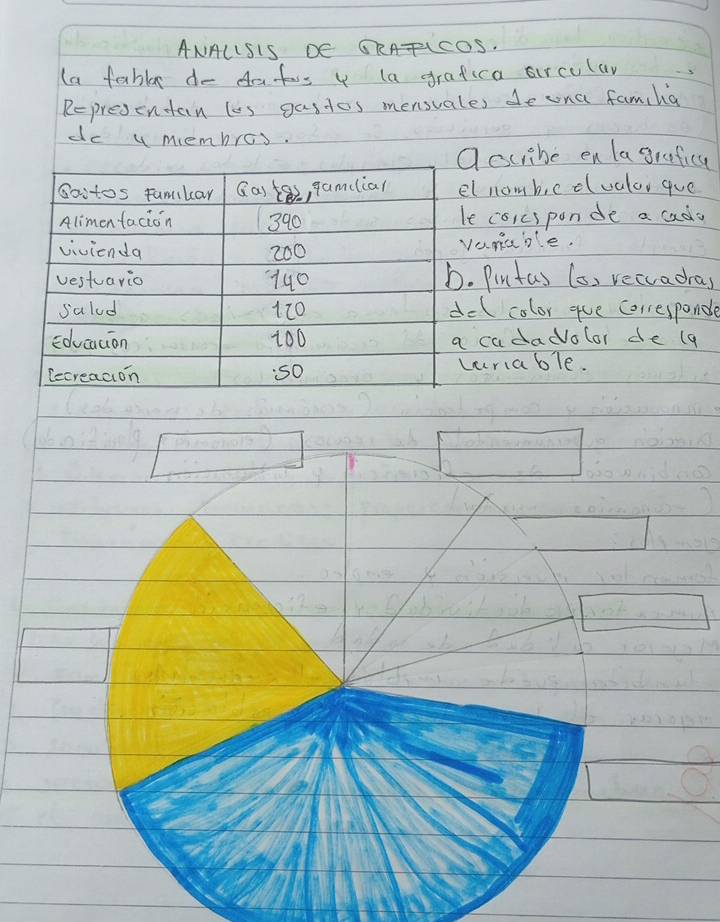 ANALISIS DE GRAFICOS.
la tabla de datos y la grafica circular
Representan los gastos mensuales de una familia
de 4 miembros.
Gastos Familiar Gastos familiar
Alimentación 390
vivienda 200
vestuario 140
Salud 120
Educación 100
Recreación 50
a escribe en la grafica
el nombre el valor que
le corresponde a cada
variable.
b. Pintas los recuadras
del color que corresponde
a cada valor de la
variable.
100